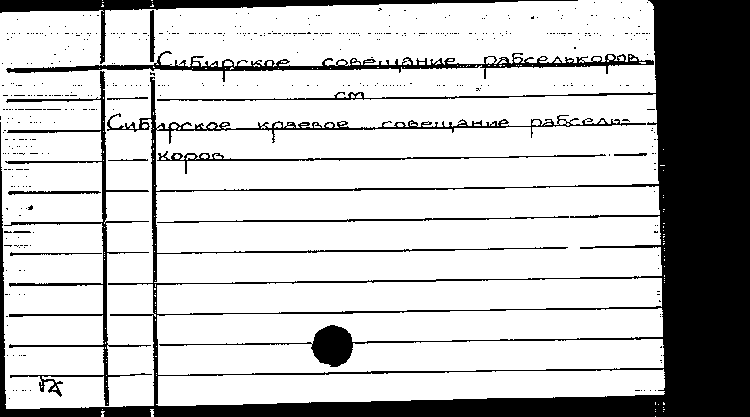 Сибирское совещание рабселькоров
см
Сибирское краевое совещание рабсель-
коров